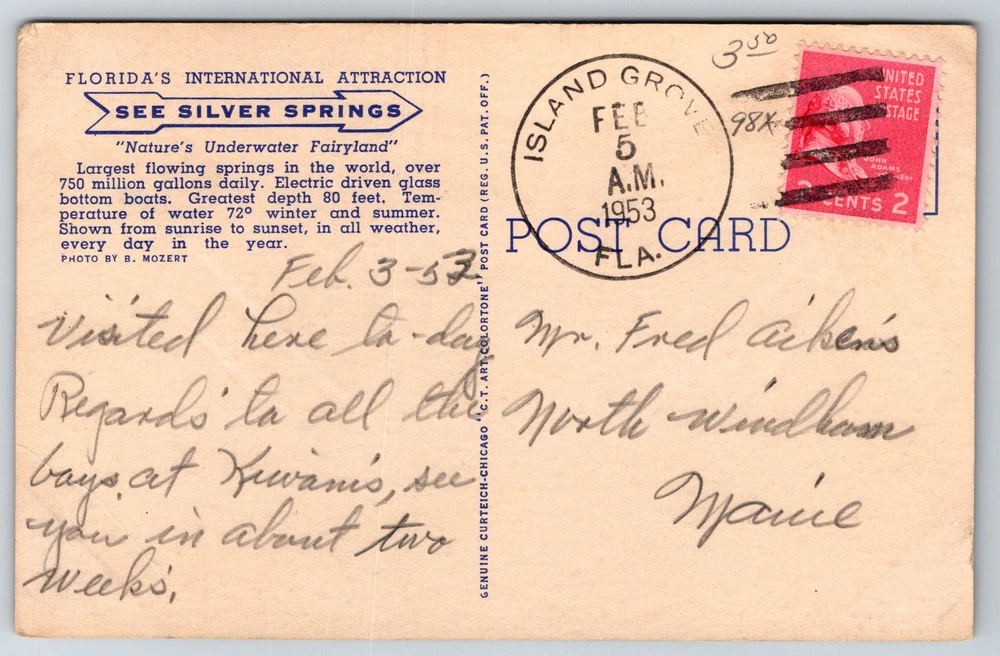 FLORIDA'S INTERNATIONAL ATTRACTION
SEE SILVER SPRINGS
"Nature's Underwater Fairyland"
Largest flowing springs in the world, over
750 million gallons daily. Electric driven glass
bottom boats. Greatest depth 80 feet. Tem-
perature of water 72° winter and summer.
Shown from sunrise to sunset, in all weather,
every day in the year.
PHOTO BY B. MOZERT
Feb. 3-53
Visited here to-day
Regards to all the
boys at Kiwanis, see
you in about two
weeks.
GENUINE CURTEICH-CHICAGO "C.T. ART-COLORTONE" POST CARD (REG. U.S. PAT. OFF.)
ISLAND GROVE
FEB
5
A.M.
1953
FLA.
POST CARD
3 50
98X
UNITED
STATES
POSTAGE
JOHN
ADAMS
2 CENTS 2
Mr. Fred Aikens
North Windham
Maine